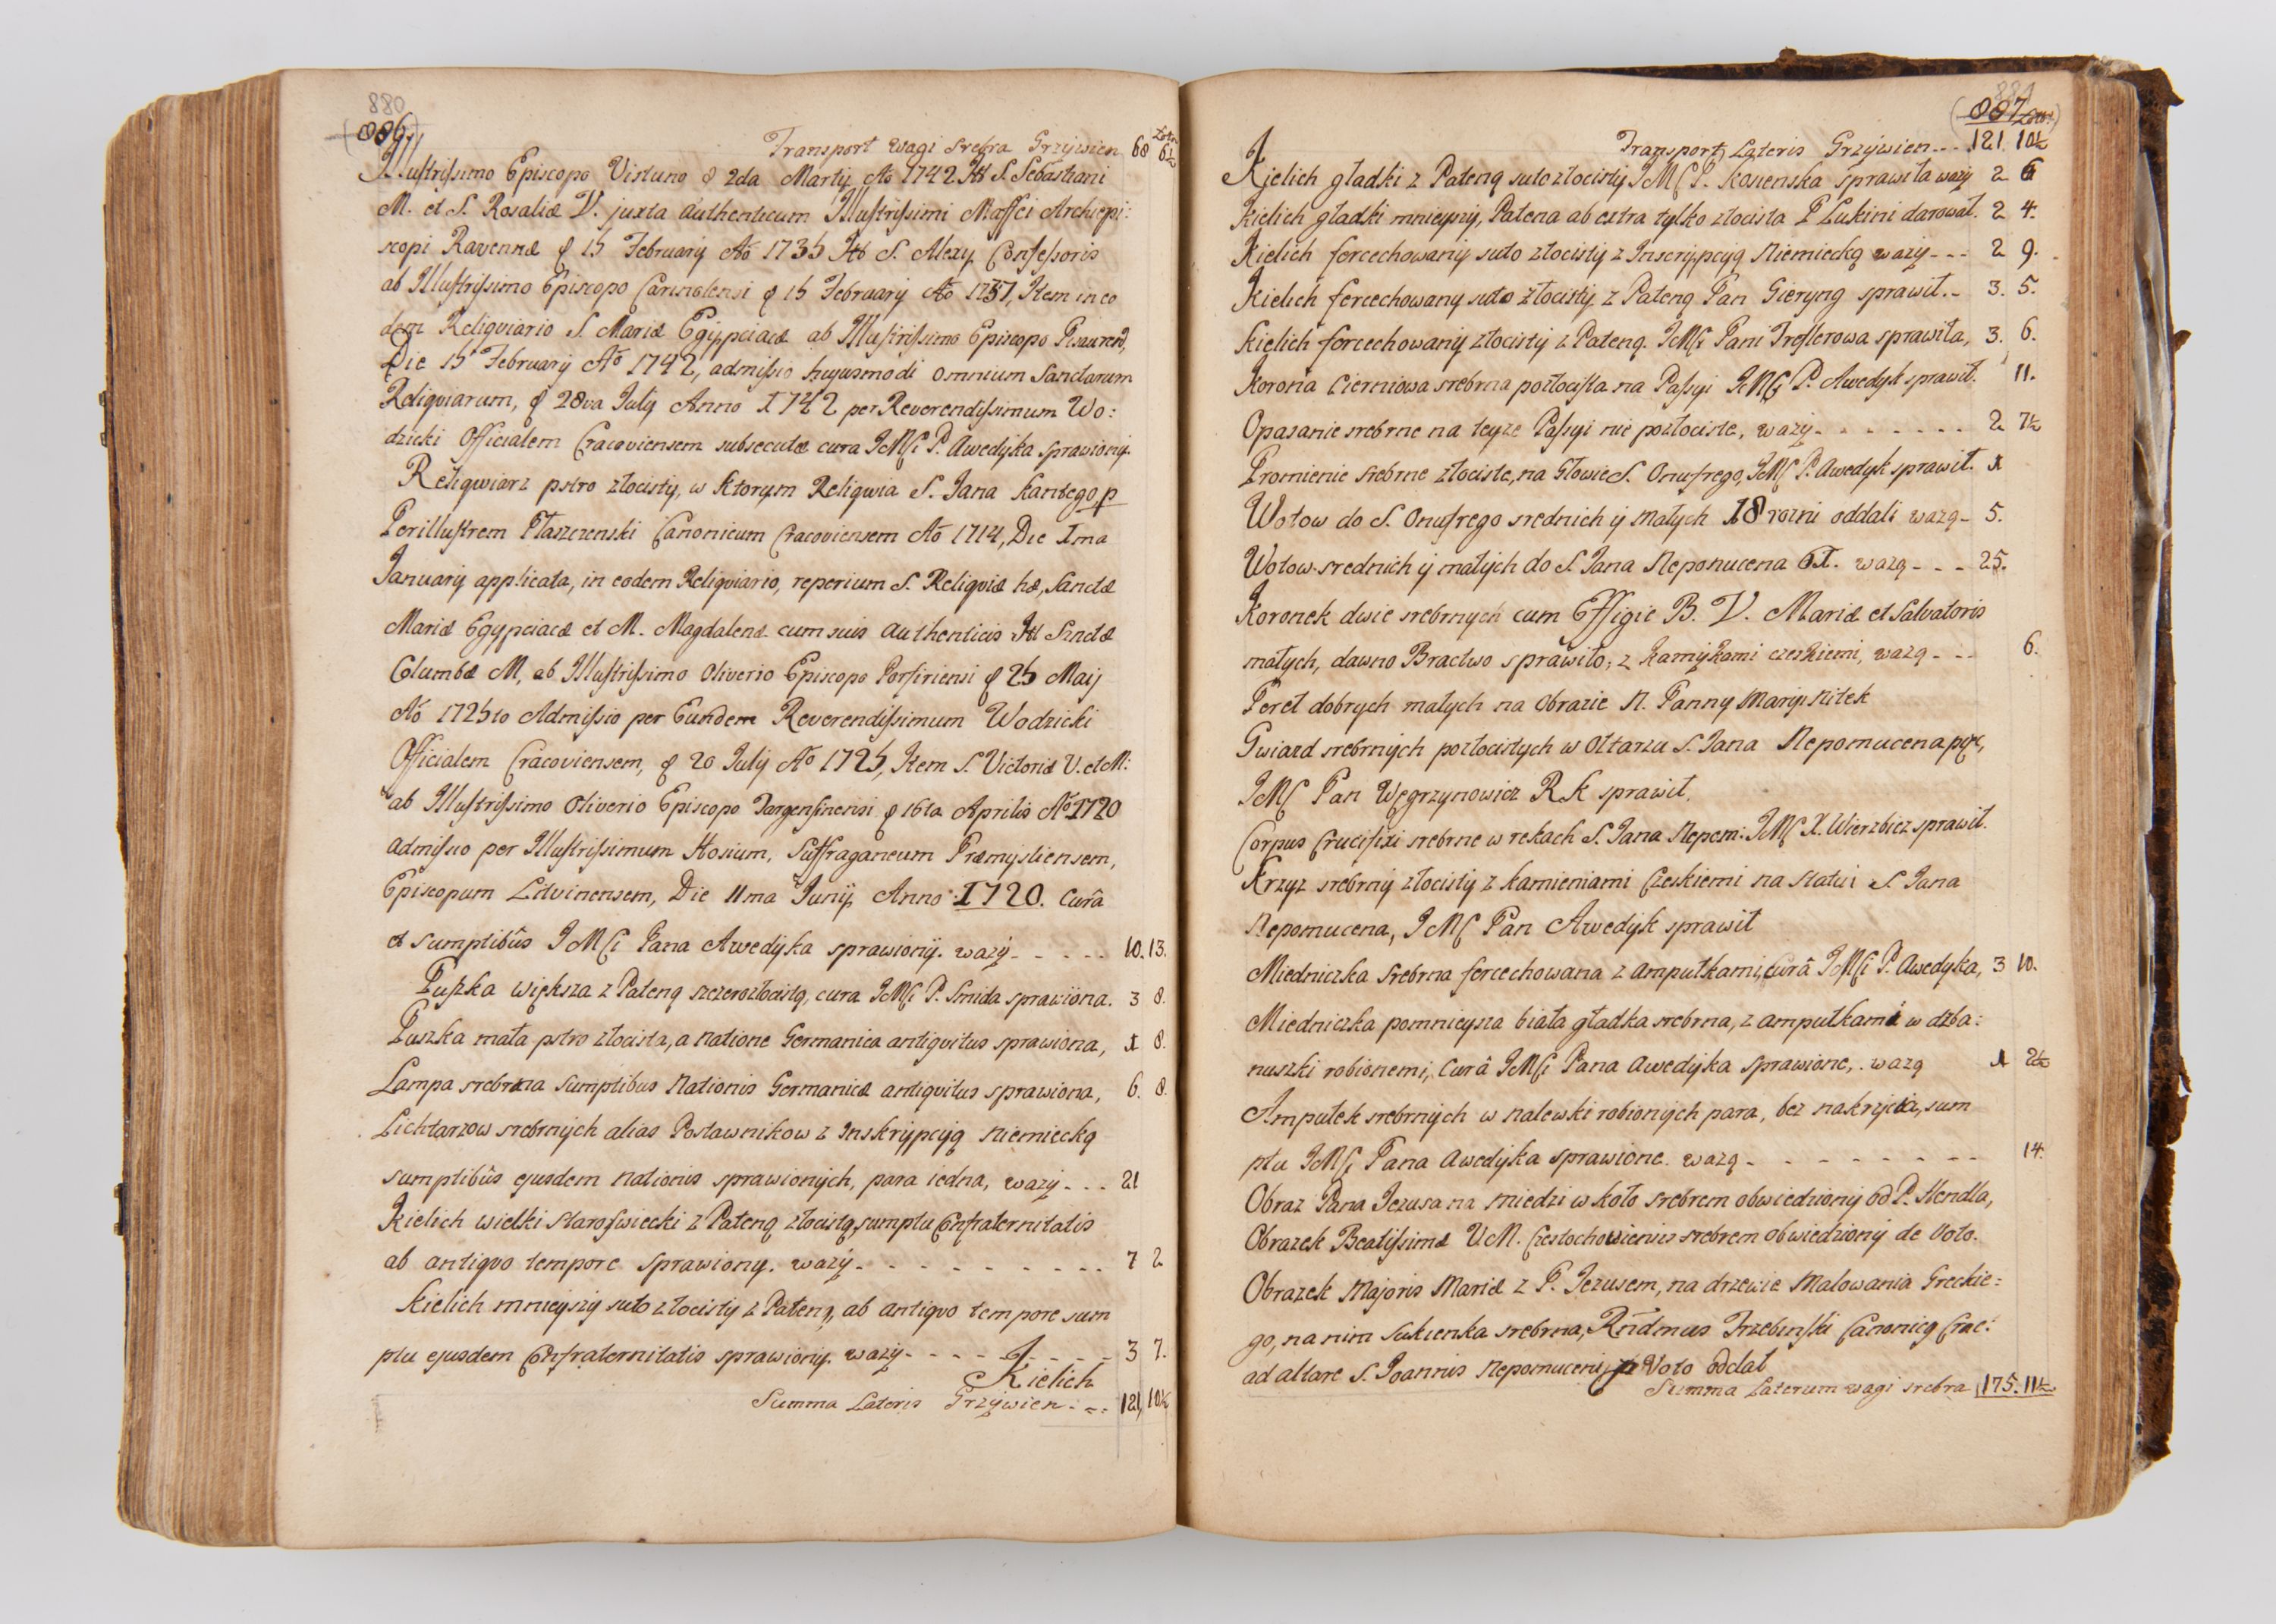 880
886.
Transport wagi srebra Grzywien 68 6½
Łotn
Illustrissimo Episcopo Vistuno d 2da Martij Ao 1742 Itt S. Sebastiani
M. et S. Rosaliæ V. juxta Authenticum Illustrissimi Maffei Archiepi:
scopi Ravennæ d 15 February Ao 1735 Itt S. Alexy Confessoris
ab Illustrissimo Episcopo Carinolensi d 15 February Ao 1737, Item in eo
dem Reliqviario S. Mariæ Egÿpciacæ ab Illustrissimo Episcopo
Die 15 February Ao 1742, admissio hujusmodi omnium Sanctarum
Reliqviarum, d 28va July Anno 1742 per Reverendissimum Wo:
dzicki Officialem Cracoviensem subsecutæ cura JMCi P. Awedyka sprawiony.
Reliqwiarz pstro złocisty, w ktorym Reliqwia S. Jana Kantego p
Perillustrem Płaszczenski Canonicum Cracoviensem Ao 1714, Die Ima
January applicata, in eodem Reliqviario, reperium S. Reliqviæ hæ, Sanctæ
Mariæ Egypciacæ et M. Magdalenæ cum suis Authenticis Itt Sanctæ
Columbæ M, ab Illustrissimo Oliverio Episcopo Porfiriensi d 25 Maij
Ao 1725to Admissio per Eundem Reverendissimum Wodzicki
Officialem Cracoviensem, d 20 July Ao 1725, Item S. Victoriæ V. et M:
ab Illustrissimo Oliverio Episcopo d 16ta Aprilis Ao 1720
admissio per Illustrissimum Hosium, Suffraganeum Præmysliensem,
Episcopum Litvinensem, Die 11ma Junij Anno 1720. Curâ
et sumptibûs JMCi Pana Awedÿka sprawionÿ. ważÿ - - - - - 10. 13.
Puszka większa z Pateną szczerozłocistą, cura JMCi P. Smida sprawiona. 3 8.
Puszka mała pstro złocista, a Natione Germanica antiqvitus sprawiona, 1 8.
Lampa srebrna Sumptibus Nationis Germanicæ antiqvitus sprawiona, 6. 8.
Lichtarzow srebrnych alias Postawnikow z Inskrÿpcÿą Niemiecką
sumptibûs ejusdem Nationis sprawionÿch, para iedna, ważÿ - - - 21
Kielich wielki staroswiecki z Pateną złocistą, sumptu Confraternitatis
ab antiqvo tempore sprawionÿ. ważÿ - - - - - - - - - - 7 2
Kielich mnieÿszÿ suto złocistÿ z Pateną, ab antiqvo tempore sum
ptu ejusdem Confraternitatis sprawionÿ. ważÿ - - - - - - - 3 7.
Kielich
Summa Lateris Grzÿwien - - - 121, 10½
881
887
Transport Lateris Grzÿwien - - - 121. 10½
Kielich gładki z Pateną suto złocistÿ JMC P. Kosienska sprawiła ważÿ 2 6
Kielich gładki mnieÿszÿ, Patena ab extra tÿlko złocista P Lukini darował. 2 4.
Kielich forcechowanÿ suto złocistÿ z Inscrÿpcÿą Niemiecką ważÿ - - - 2 9.
Kielich forcechowany suto złocistÿ z Pateną Pan Gierÿng sprawił. - 3. 5.
Kielich forcechowanÿ złocistÿ z Pateną. JMCi Pani Treflerowa sprawiła, 3. 6.
Korona Cierniowa srebrna pozłocista na Passyi JMCi P. Awedyk sprawił. 11.
Opasanie srebrne na teyze Passyi nie pozłociste, ważÿ - - - - - - - 2 7½
Promienie srebrne złociste, na Głowie S. Onufrego, JMC P. Awedyk sprawił. 1
Wotow do S. Onufrego srednich ÿ małÿch 18 rozni oddali wazą - 5.
Wotow srednich ÿ małÿch do S. Jana Neponucena 61. wazą - - - 25.
Koronek dwie srebrnÿch cum Effigie B. V. Mariæ et Salvatoris
małych, dawno Bractwo sprawiło, z kamÿkami czeskiemi, wazą - - - 6.
Pereł dobrych małych na Obrazie N. Panny Maryi Nitek
Gwiazd srebrnÿch pozłocistych w Ołtarzu S. Jana Nepomucena
JMC Pan Węgrzynowicz R K sprawił.
Corpus Crucifixi srebrne w rekach S. Jana Nepom: JMC X. Wierzbicz sprawił.
Krzyz srebrnÿ złocistÿ z kamieniami Czeskiemi na statui S Jana
Nepomucena, JMC Pan Awedÿk sprawił
Miedniczka srebrna forcechowana z ampułkami, Curâ JMCi P. Awedyka, 3 10.
Miedniczka pomnieÿsza biała gładka srebrna, z ampułkami w dzba:
nuszki robionemi, Curâ JMCi Pana Awedÿka sprawione, wazą 1 2½
Ampułek srebrnÿch w nalewki robionÿch para, bez nakrÿcia, sum
ptu JMCi Pana Awedyka sprawione. wazą - - - - - - - - - 14.
Obraz Pana Jezusa na miedzi w koło srebrem obwiedzionÿ od P. Hendla,
Obrazek Beatissimæ V. M. Czestochowiensis srebrem obwiedzionÿ de Voto.
Obrazek Majoris Mariæ z P. Jezusem, na drzewie Malowania Greckie=
go, na nim sukienka srebrna, Rndmus Trzebinski Canonicq Crac:
ad altare S. Joannis Nepomuceni p Voto oddał
Summa Laterum wagi srebra 175. 11½